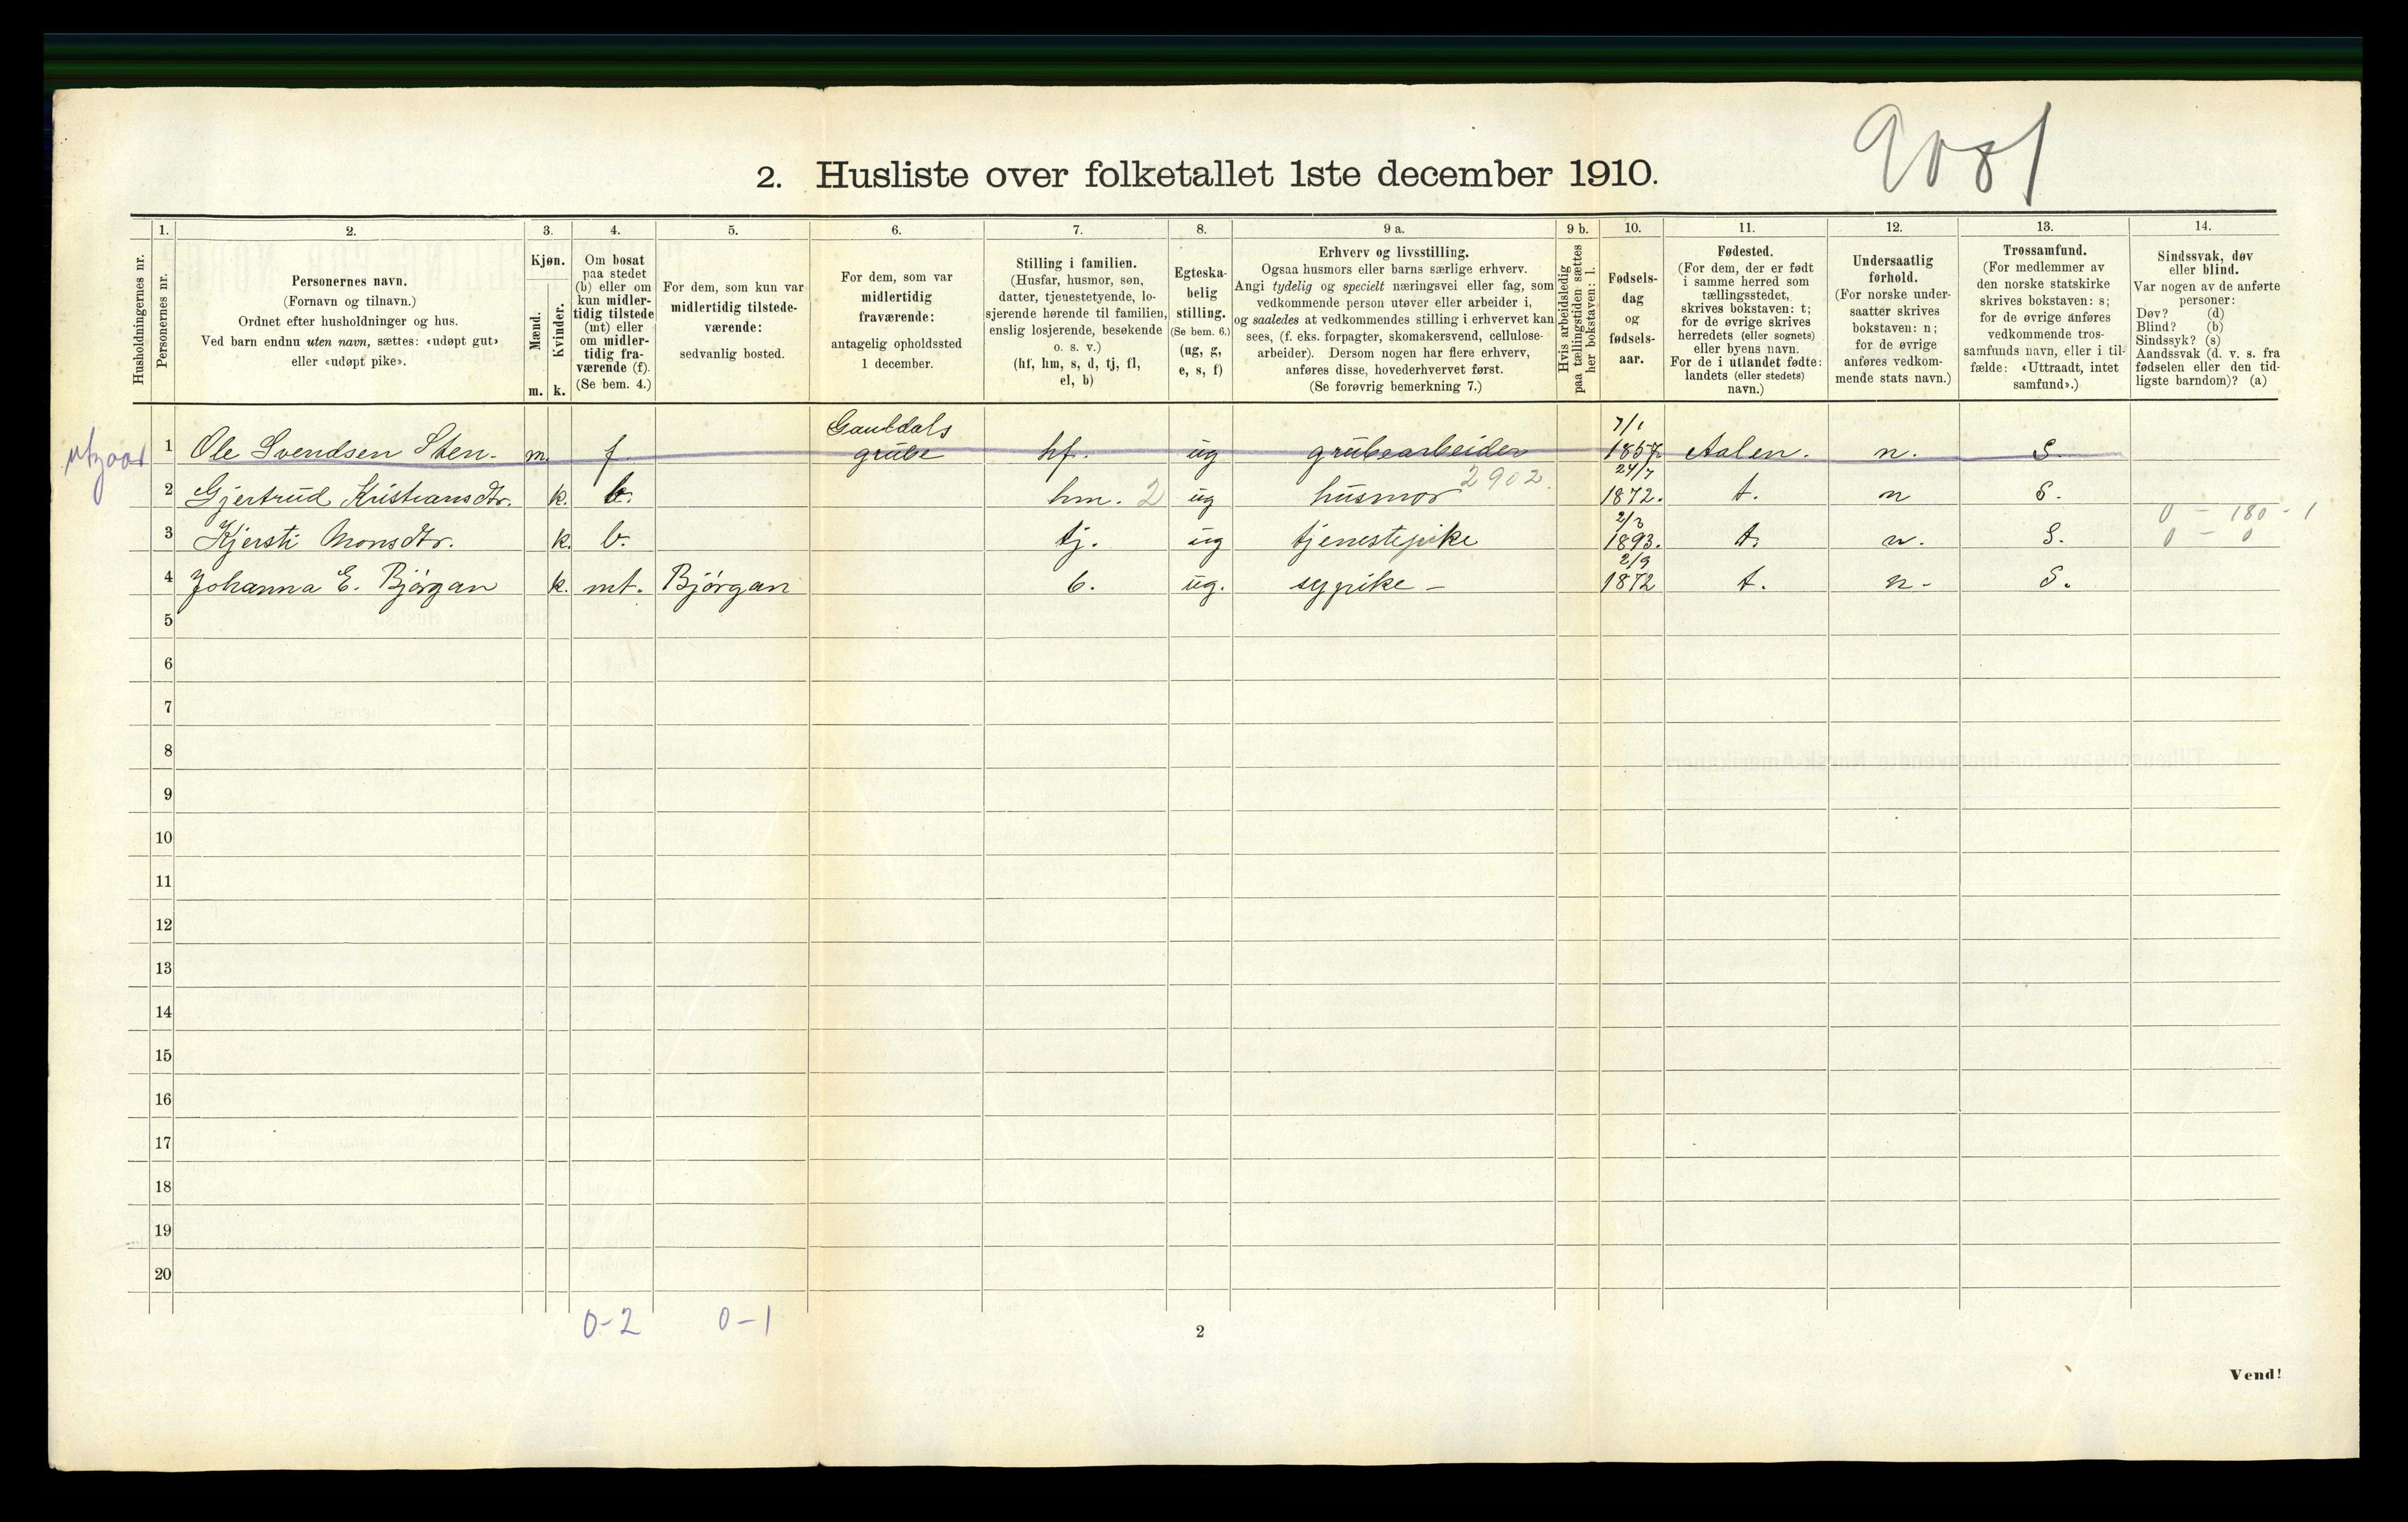 9081
2. Husliste over folketallet 1ste december 1910.
Husholdningernes nr.
1.
Personernes nr.
2.
Personernes navn.
(Fornavn og tilnavn.)
Ordnet efter husholdninger og hus.
Ved barn endnu uten navn, sættes: «udøpt gut»
eller «udøpt pike».
3.
Kjøn.
Mænd.
m.
Kvinder.
k.
4.
Om bosat
paa stedet
(b) eller om
kun midler-
tidig tilstede
(mt) eller
om midler-
tidig fra-
værende (f).
(Se bem. 4.)
5.
For dem, som kun var
midlertidig tilstede-
værende:
sedvanlig bosted.
6.
For dem, som var
midlertidig
fraværende:
antagelig opholdssted
1 december.
7.
Stilling i familien.
(Husfar, husmor, søn,
datter, tjenestetyende, lo-
sjerende hørende til familien,
enslig losjerende, besøkende
o. s. v.)
(hf, hm, s, d, tj, fl,
el, b)
8.
Egteska-
belig
stilling.
(Se bem. 6.)
(ug, g,
e, s, f)
9 a.
Erhverv og livsstilling.
Ogsaa husmors eller barns særlige erhverv.
Angi tydelig og specielt næringsvei eller fag, som
vedkommende person utøver eller arbeider i,
og saaledes at vedkommendes stilling i erhvervet kan
sees, (f. eks. forpagter, skomakersvend, cellulose-
arbeider). Dersom nogen har flere erhverv,
anføres disse, hovederhvervet først.
(Se forøvrig bemerkning 7.)
9 b.
Hvis arbeidsledig
paa tællingstiden sættes
her bokstaven: l.
10.
Fødsels-
dag
og
fødsels-
aar.
11.
Fødested.
(For dem, der er født
i samme herred som
tællingsstedet,
skrives bokstaven: t;
for de øvrige skrives
herredets (eller sognets)
eller byens navn.
For de i utlandet fødte:
landets (eller stedets)
navn.)
12.
Undersaatlig
forhold.
(For norske under-
saatter skrives
bokstaven: n;
for de øvrige
anføres vedkom-
mende stats navn.)
13.
Trossamfund.
(For medlemmer av
den norske statskirke
skrives bokstaven: s;
for de øvrige anføres
vedkommende tros-
samfunds navn, eller i til-
fælde: «Uttraadt, intet
samfund».)
14.
Sindssvak, døv
eller blind.
Var nogen av de anførte
personer:
Døv? (d)
Blind? (b)
Sindssyk? (s)
Aandssvak (d. v. s. fra
fødselen eller den tid-
ligste barndom)? (a)
utgaar 1 Ole Svendsen Sten. m. f. Gauldals grube hf. ug grubearbeider 7/1 1857 Aalen. n. S.
2 Gjertrud Kristiansdtr. k. b. hm. 2 ug husmor 2902. 24/7 1872. t. n S.
0 - 180 - 1
3 Kjersti Monsdtr. k. b. tj. ug tjenestepike 2/3 1893. t. n. S. 0 - 0
4 Johanna E. Bjørgan k. mt. Bjørgan b. ug. sypike - 2/9 1872 t. n- S.
5
6
7
8
9
10
11
12
13
14
15
16
17
18
19
20
0-2 0-1
2
Vend!